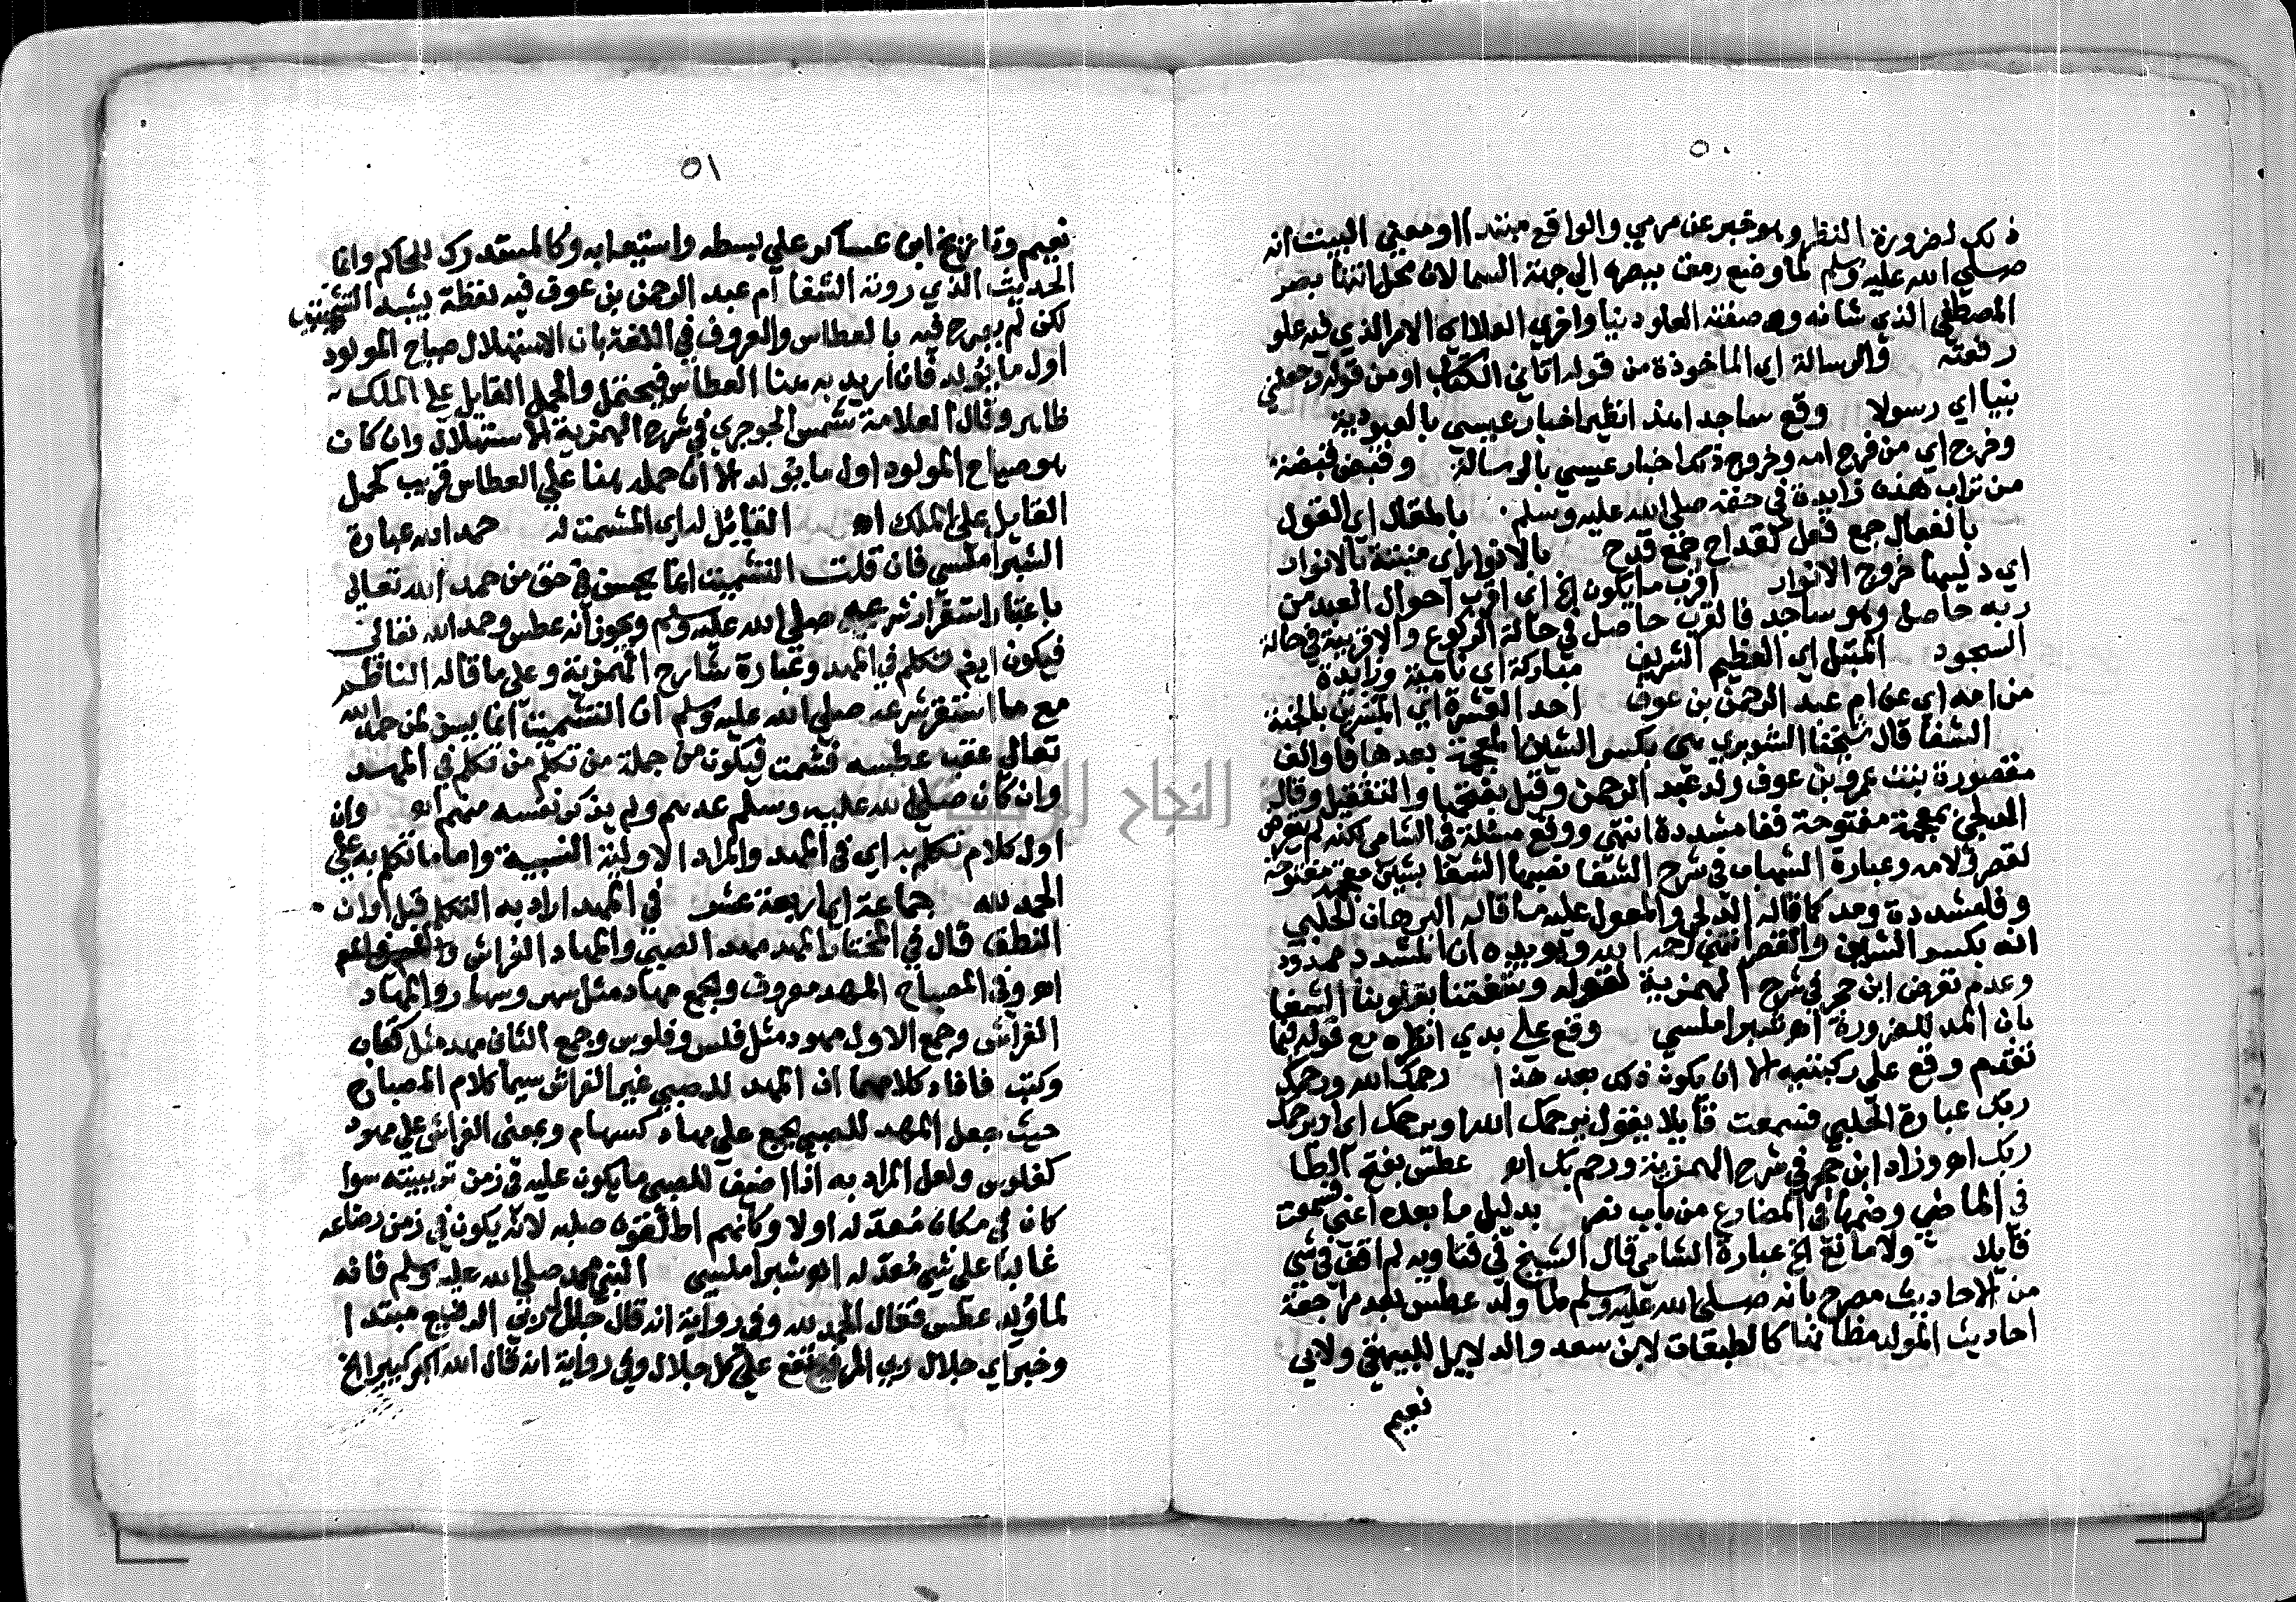 ٥٠
ذلك لضرورة النظم وهو خبر عن مرمي والواقع مبتدا او معني البيت انه
صلي الله عليه وسلم لما وضع رمق ببصره الي جهة السما لان محل انتها بصر
المصطفي الذي شانه وصفته العلو دنيا واخري العلا اي الامر الذي فيه علو
رفعته والرسالة اي الماخوذة من قوله اتاني الكتاب او من قوله وجعلني
نبيا اي رسولا وقع ساجدا هذا نظير اخبار عيسي بالعبودية
وخرج اي من فرج امه وخروج ذكر اخبار عيسي بالرسالة وقبض قبضة
من تراب هذه زايدة في حقه صلي الله عليه وسلم بالمقال اي القول
بالفعال جمع فعل كقداح جمع قدح بالانوار اي منبتة بالانوار
اي دليها خروج الانوار اقرب ما يكون الخ اي اقرب احوال العبد من
ربه حاصل وهو ساجد فالقرب حاصل في حالة الركوع والاقربية في حالة
السجود المبتل اي العظيم الشريف مباركة اي نامية وزايدة
من امه اي عن ام عبد الرحمن بن عوف احد العشرة اي المبشرين بالجنة
الشفا قال شيخنا الشوبري هي بكسر الشين المعجمة بعدها فا والف
مقصورة بنت عمرو بن عوف ولد عبد الرحمن وقيل بفتحها والتثقيل وقال
الدلجي بمعجمة مفتوحة ففا مشددة انتهي ووقع مثله في الشامي لكنه لم يتعرض
لقصر في لامه وعبارة الشهاب في شرح الشفا نصها الشفا بشين معجمة مفتوحة
وفا مشددة ومد كما قاله الدلجي والمعول عليه ما قاله البرهان الحلبي
انه بكسر الشين والقصر انتهي رحمه الله ويويده ان المشدد ممدود
وعدم تعرض ابن حجر في شرح الهمزية لقوله وشفتنا بقولها الشفا
بان المد للضرورة اه شبراملسي وقع علي يدي انظره مع قوله فيما
تقدم وقع علي ركبتيه الا ان يكون ذلك بعد هذا رحمك الله ورحمك
ربك عبارة الحلبي فسمعت قايلا يقول يرحمك الله او يرحمك اي او يرحمك
ربك اه وزاد ابن حجر في شرح الهمزية ورحم بك اه عطس بفتح الطا
في الماضي وضمها في المضارع من باب نصر بدليل ما بعده اعني فسمعت
قايلا ولا مانع الخ عبارة الشامي قال الشيخ في فتاويه لم اقف في شي
من الاحاديث مصرح بانه صلي الله عليه وسلم لما ولد عطس بعد مراجعة
احاديث المولد مظانها كالطبقات لابن سعد والدلايل للبيهقي ولابي
نعيم
٥١
نعيم وتاريخ ابن عساكر علي بسطه واستيعابه وكالمستدرك للحاكم وانما
الحديث الذي روته الشفا ام عبد الرحمن بن عوف فيه لفظة يشبه التشميت
لكن لم يصرح فيه بالعطاس والمعروف في اللغة بان الاستهلال صياح المولود
اول ما يولد فان اريد به هنا العطاس فيحتمل والحمل القايل علي الملك
ظاهر وقال العلامة شمس الجوجري في شرح الهمزية الاستهلال وان كان
هو صياح المولود اول ما يولد الا ان حمله هنا علي العطاس قريب كحمل
القايل علي الملك اه القايل له اي المشمت له حمد الله عبارة
الشبراملسي فان قلت التشميت انما يحسن في حق من حمد الله تعالي
باعتبار استقرار شرعيه صلي الله عليه وسلم ويجوز انه عطس وحمد الله تعالي
فيكون ايضا تكلم في المهد وعبارة شارح الهمزية وعلي ما قاله الناظم
مع ما استقر شرعه صلي الله عليه وسلم ان التشميت انما يسن لمن حمد الله
تعالي عقب عطسه فشمت فيكون من جملة من تكلم من تكلم في المهد
وان كان صلي الله عليه وسلم عدهم ولم يذكر نفسه منهم اه وان
اول كلام تكلم به اي في المهد والمراد الاولية النسبية واما ما تكلم به علي
الحمد لله جماعة اي اربعة عشر في المهد اراد به التكلم قبل اوان
النطق قال في المختار المهد مهد الصبي والمهاد الفراش
اه وفي المصباح المهد معروف والجمع مهاد مثل سهم وسهام والمهاد
الفراش وجمع الاول مهود مثل فلس وفلوس وجمع الثاني مهد مثل كتاب
وكتب فافاد كلامهما ان المهد للصبي غير الفراش سيما كلام المصباح
حيث جعل المهد للصبي يجمع علي مهاد كسهام وبمعني الفراش علي مهود
كفلوس ولعل المراد به اذا اضيف للصبي ما يكون عليه في زمن تربيته سوا
كان في مكان معد له اولا وكانهم اطلقوه صلبه لانه يكون في زمن رضاعه
غالبا علي شي معد له اه شبراملسي النبي محمد صلي الله عليه وسلم فانه
لما ولد عطس فقال الحمد لله وفي رواية انه قال جلال ربي الرفيع مبتدا
وخبر اي جلال ربي المرفع علي كل جلال وفي رواية انه قال الله اكبر كبيرا الخ
النجاح